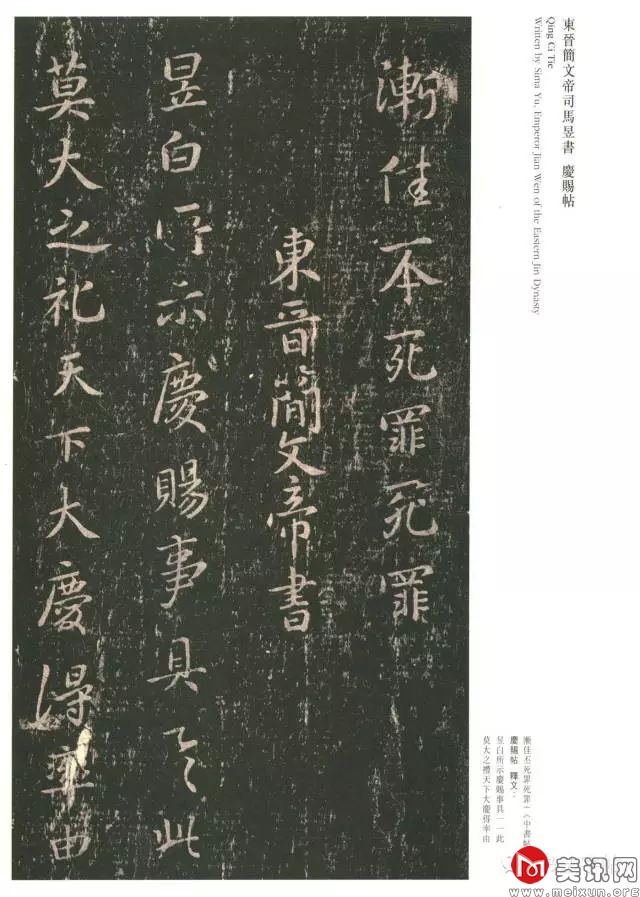 東晉簡文帝司馬昱書 慶賜帖
Qing Ci Tie
Written by Sima Yu, Emperor Jian Wen of the Eastern Jin Dynasty
漸佳丕死罪死罪
東晉簡文帝書
昱白所示慶賜事具一一此
莫大之礼天下大慶得率由
漸佳丕死罪死罪！（中書帖
慶賜帖 釋文：
昱白所示慶賜事具一一此
莫大之禮天下大慶得率由
美讯网
www.meixun.org